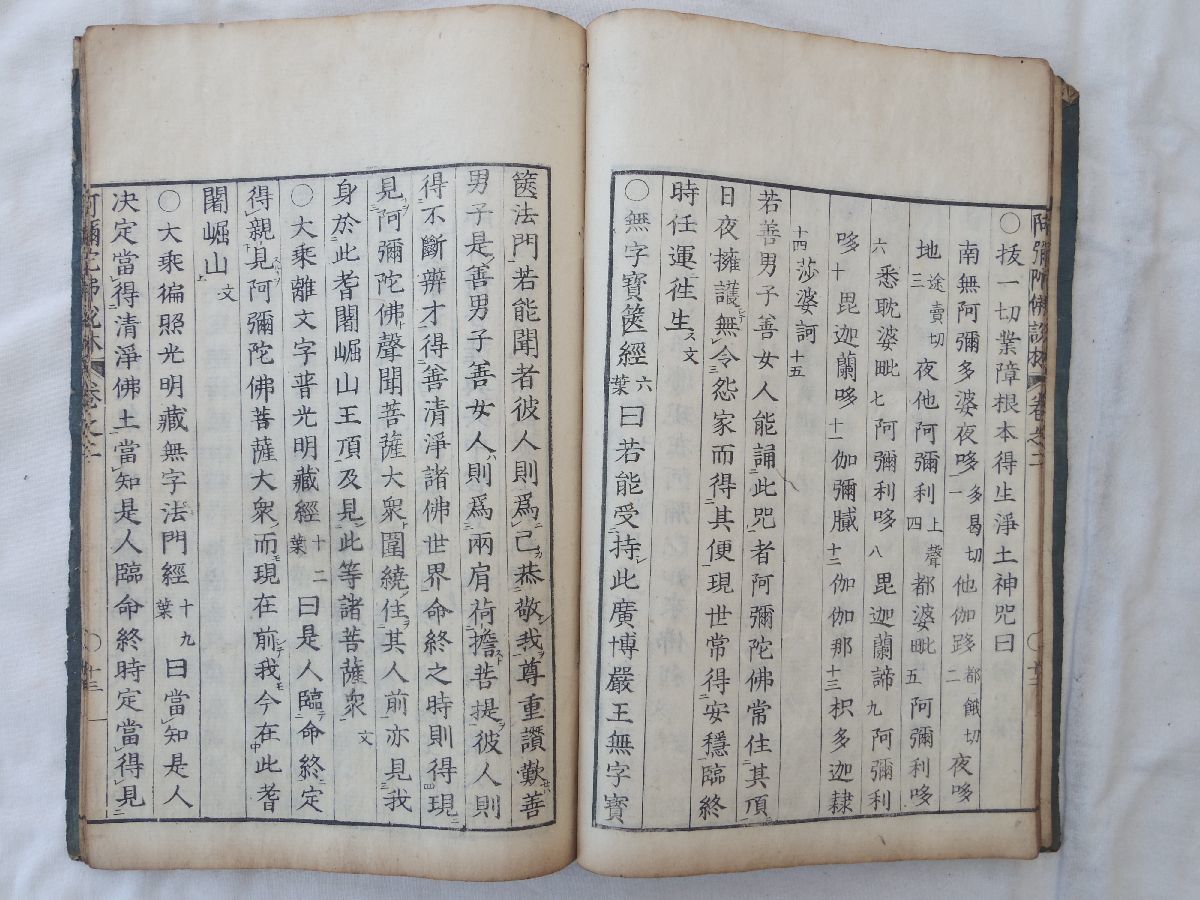 阿彌陀佛說林 卷之二
○拔一切業障根本得生淨土神咒曰
南無阿彌多婆夜哆一多曷切他伽跢二都餓切夜哆
地三途賣切夜他阿彌利四上聲都婆毗五阿彌利哆
六悉耽婆毗七阿彌利哆八毘迦蘭諦九阿彌利
哆十毘迦蘭哆十一伽彌膩十二伽伽那十三枳多迦隸
十四莎婆訶十五
若善男子善女人能誦此咒者阿彌陀佛常住其頂
日夜擁護無令怨家而得其便現世常得安穩臨終
時任運徃生文
○無字寶篋經六葉曰若能受持此廣博嚴王無字寶
篋法門若能聞者彼人則爲己恭敬我尊重讚歎善
男子是善男子善女人則爲兩肩荷擔菩提彼人則
得不斷辨才得善清淨諸佛世界命終之時則得現
見阿彌陀佛聲聞菩薩大衆圍繞住其人前亦見我
身於此耆闍崛山王頂及見此等諸菩薩衆文
○大乘離文字普光明藏經十二葉曰是人臨命終定
得親見阿彌陀佛菩薩大衆而現在前我今在此耆
闍崛山文
○大乘徧照光明藏無字法門經十九葉曰當知是人
決定當得清淨佛土當知是人臨命終時定當得見
阿彌陀佛說林 卷之二 ○十三